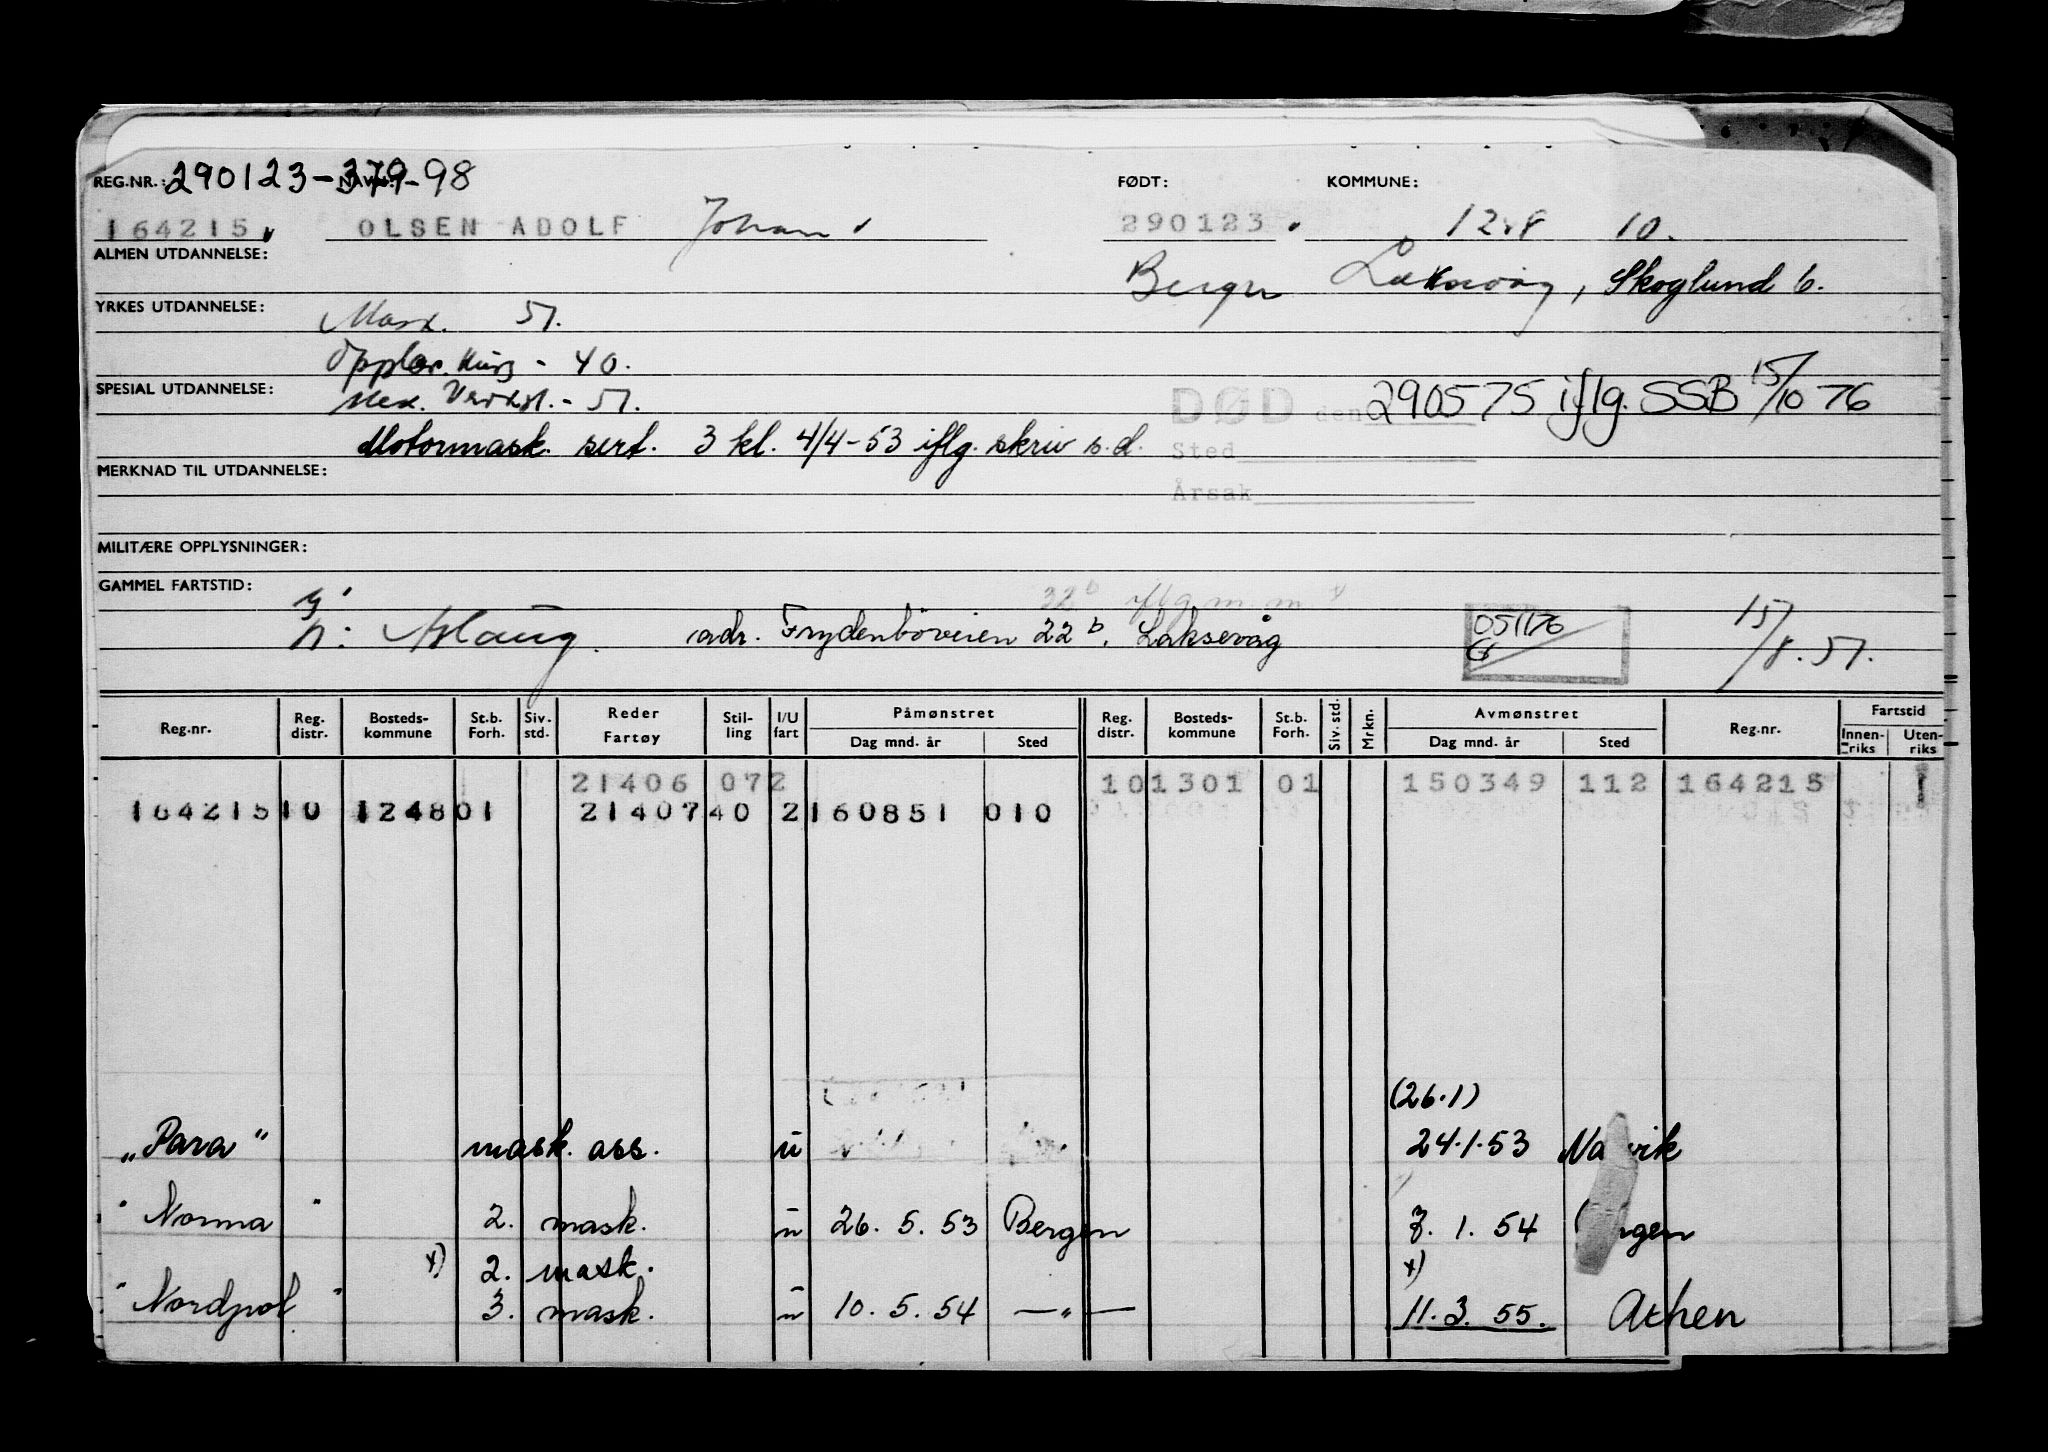 REG.NR.: 290123-379-98 FØDT: KOMMUNE:
164215 OLSEN ADOLF Johan 290123 1248 10.
ALMEN UTDANNELSE:
Bergen Laksevåg, Skoglund 6.
YRKES UTDANNELSE: Mask. 51.
Opplær. kurs - 40.
SPESIAL UTDANNELSE: Mek. Verkst. - 51.
DØD den 290575 iflg. SSB 15/10 76
Motormask. sert. 3 kl. 4/4-53 iflg. skriv s.d.
Sted
MERKNAD TIL UTDANNELSE:
Årsak
MILITÆRE OPPLYSNINGER:
GAMMEL FARTSTID:
32b iflg m.m x
g
n: Aslaug. adr. Frydenböveien 22b, Laksevåg 051176 15/8.51.
Reg.nr. Reg. distr. Bosteds- kommune St.b. Forh. Siv. std. Reder Fartøy Stil- ling I/U fart Påmønstret Dag mnd. år Sted Reg. distr. Bosteds- kommune St.b. Forh. Siv. std. Mrkn. Avmønstret Dag mnd. år Sted Reg.nr. Fartstid Innen- riks Uten- riks
21406 072 101301 01 150349 112 164215 1
164215 10 1248 01 21407 40 2 160851 010
(26.1)
„Para" mask. ass. u 24.1.53 Narvik
" Norma " 2. mask. u 26. 5. 53 Bergen 7. 1. 54 Bergen
x) 2. mask. x)
" Nordpol " 3. mask. u 10. 5. 54 —"— 11. 3. 55. Athen